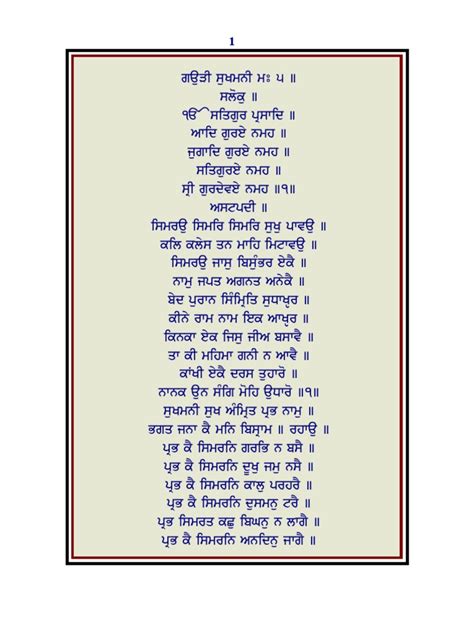 1
ਗਉੜੀ ਸੁਖਮਨੀ ਮਃ ੫ ॥
ਸਲੋਕੁ ॥
ੴ ਸਤਿਗੁਰ ਪ੍ਰਸਾਦਿ ॥
ਆਦਿ ਗੁਰਏ ਨਮਹ ॥
ਜੁਗਾਦਿ ਗੁਰਏ ਨਮਹ ॥
ਸਤਿਗੁਰਏ ਨਮਹ ॥
ਸ੍ਰੀ ਗੁਰਦੇਵਏ ਨਮਹ ॥੧॥
ਅਸਟਪਦੀ ॥
ਸਿਮਰਉ ਸਿਮਰਿ ਸਿਮਰਿ ਸੁਖੁ ਪਾਵਉ ॥
ਕਲਿ ਕਲੇਸ ਤਨ ਮਾਹਿ ਮਿਟਾਵਉ ॥
ਸਿਮਰਉ ਜਾਸੁ ਬਿਸੁੰਭਰ ਏਕੈ ॥
ਨਾਮੁ ਜਪਤ ਅਗਨਤ ਅਨੇਕੈ ॥
ਬੇਦ ਪੁਰਾਨ ਸਿੰਮ੍ਰਿਤਿ ਸੁਧਾਖੵਰ ॥
ਕੀਨੇ ਰਾਮ ਨਾਮ ਇਕ ਆਖੵਰ ॥
ਕਿਨਕਾ ਏਕ ਜਿਸੁ ਜੀਅ ਬਸਾਵੈ ॥
ਤਾ ਕੀ ਮਹਿਮਾ ਗਨੀ ਨ ਆਵੈ ॥
ਕਾਂਖੀ ਏਕੈ ਦਰਸ ਤੁਹਾਰੋ ॥
ਨਾਨਕ ਉਨ ਸੰਗਿ ਮੋਹਿ ਉਧਾਰੋ ॥੧॥
ਸੁਖਮਨੀ ਸੁਖ ਅੰਮ੍ਰਿਤ ਪ੍ਰਭ ਨਾਮੁ ॥
ਭਗਤ ਜਨਾ ਕੈ ਮਨਿ ਬਿਸ੍ਰਾਮ ॥ ਰਹਾਉ ॥
ਪ੍ਰਭ ਕੈ ਸਿਮਰਨਿ ਗਰਭਿ ਨ ਬਸੈ ॥
ਪ੍ਰਭ ਕੈ ਸਿਮਰਨਿ ਦੂਖੁ ਜਮੁ ਨਸੈ ॥
ਪ੍ਰਭ ਕੈ ਸਿਮਰਨਿ ਕਾਲੁ ਪਰਹਰੈ ॥
ਪ੍ਰਭ ਕੈ ਸਿਮਰਨਿ ਦੁਸਮਨੁ ਟਰੈ ॥
ਪ੍ਰਭ ਸਿਮਰਤ ਕਛੁ ਬਿਘਨੁ ਨ ਲਾਗੈ ॥
ਪ੍ਰਭ ਕੈ ਸਿਮਰਨਿ ਅਨਦਿਨੁ ਜਾਗੈ ॥